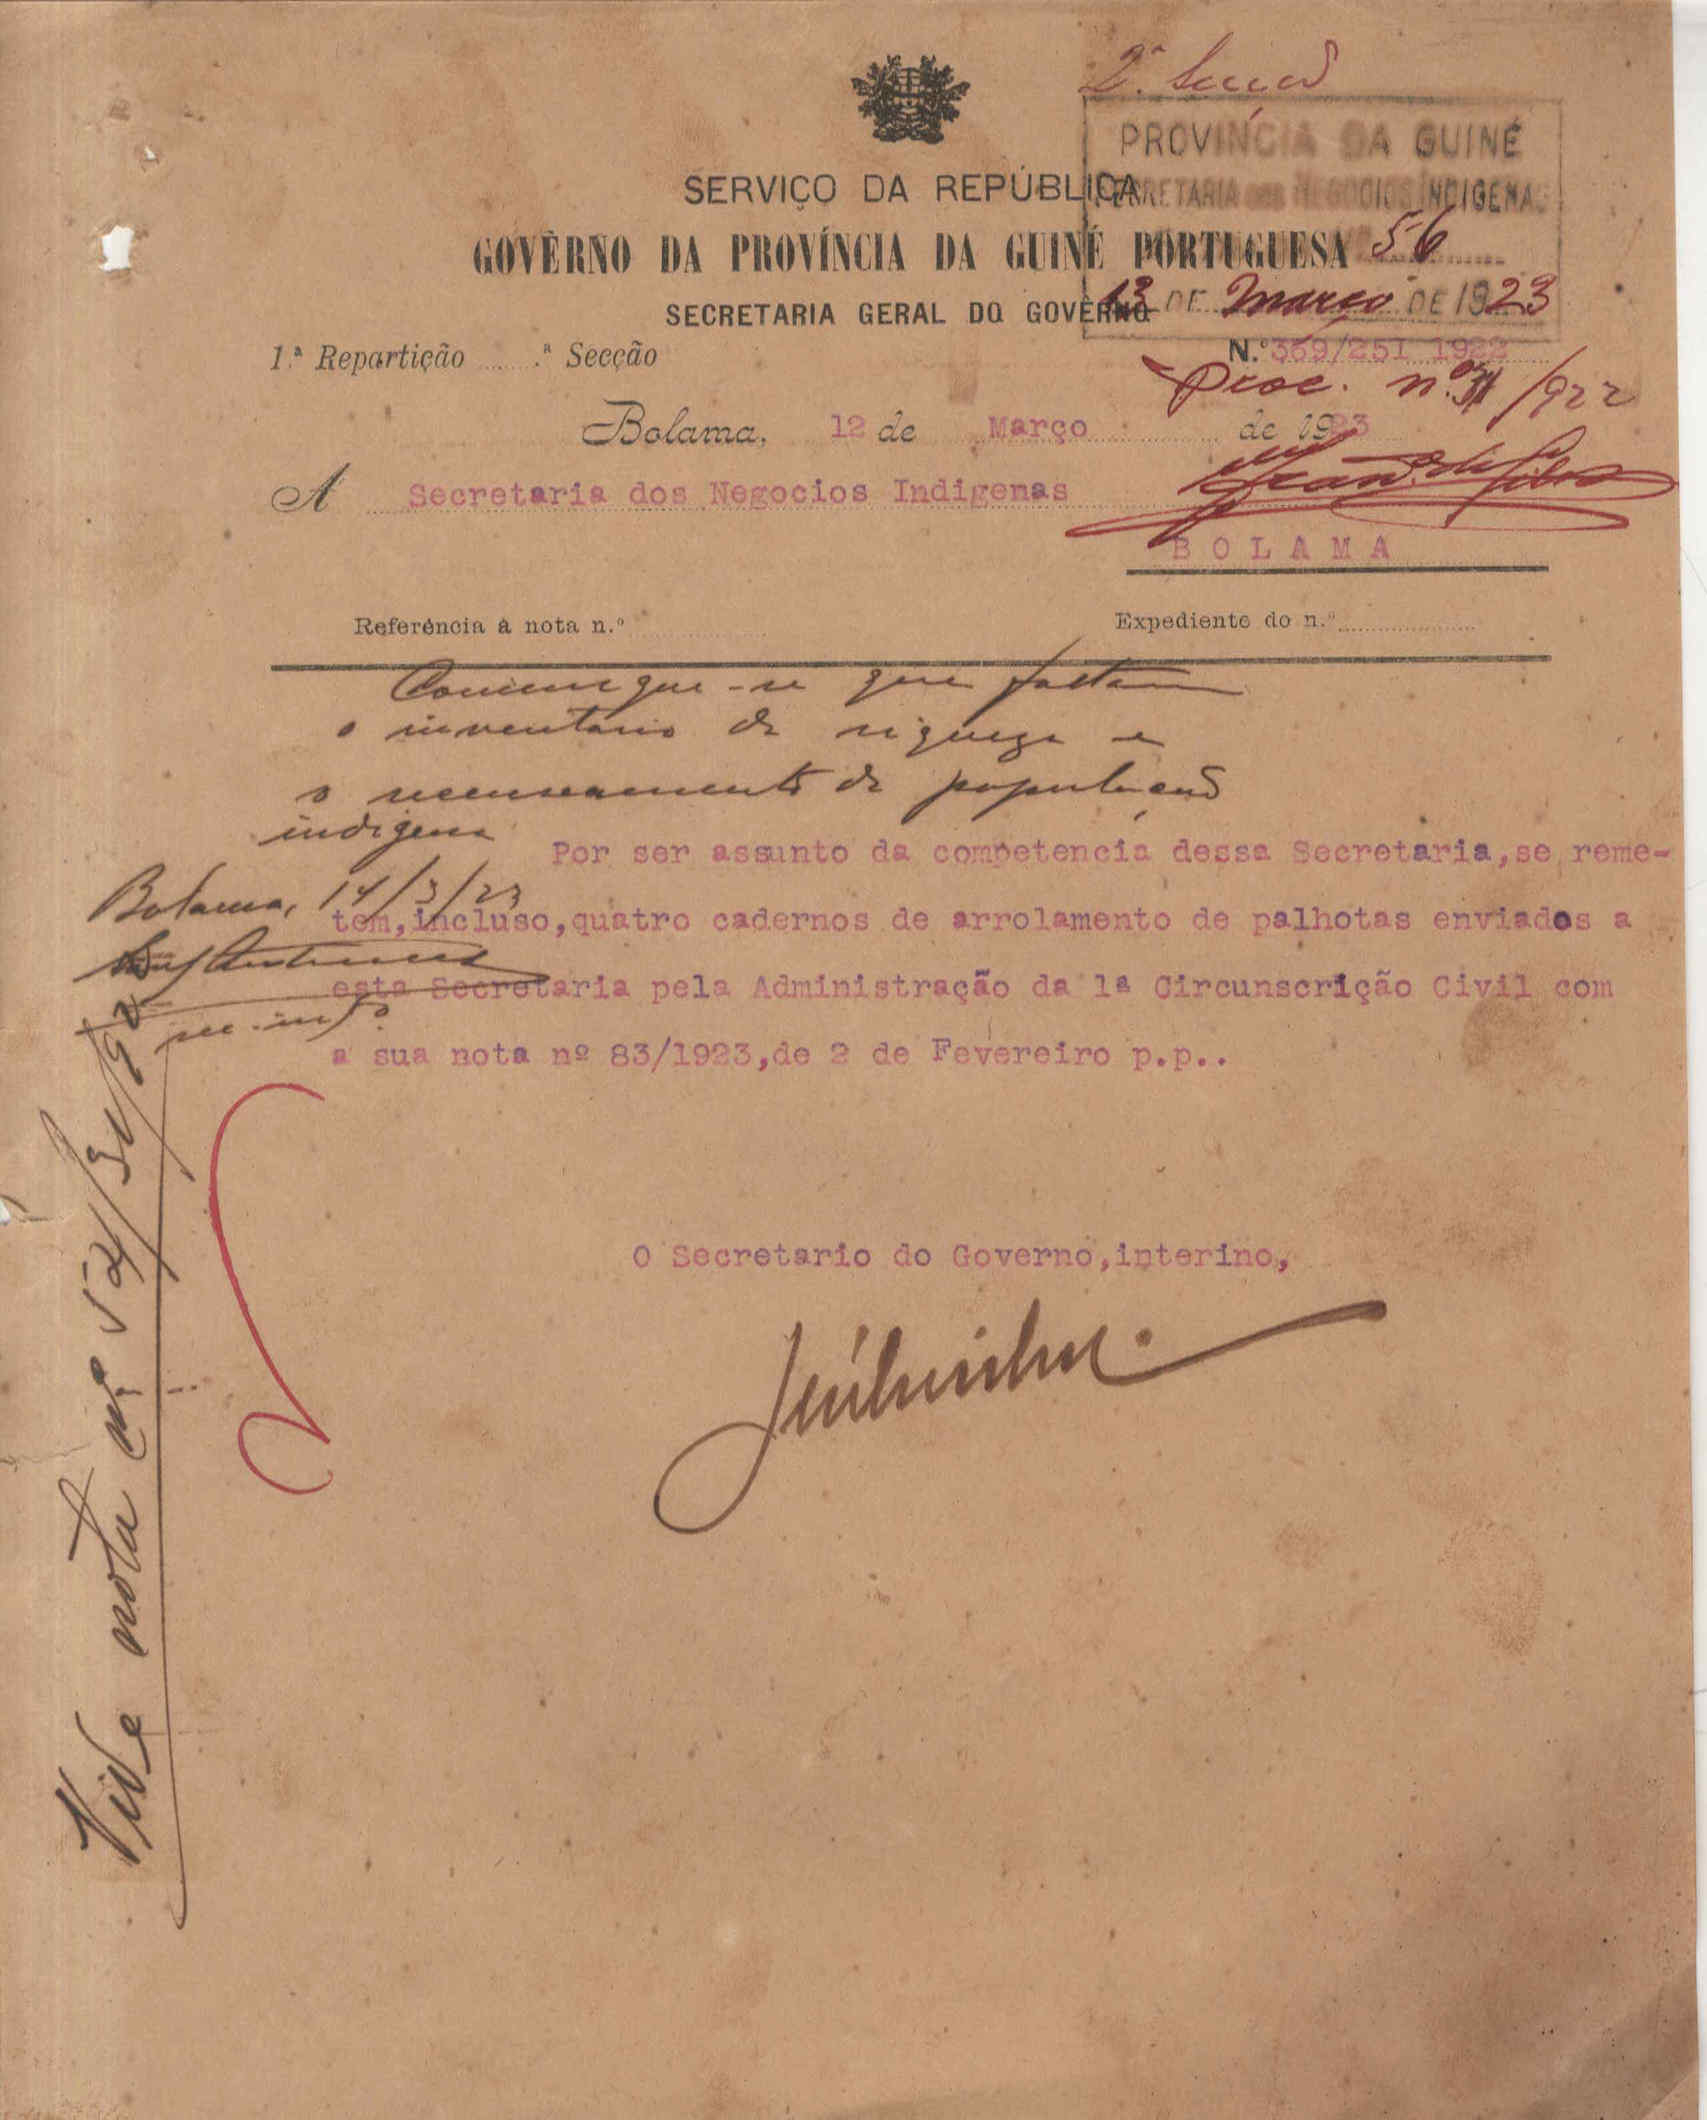 2ª Secção
PROVINCIA DA GUINÉ
SECRETARIA DOS NEGOCIOS INDIGENAS
SERVIÇO DA REPÚBLICA
GOVÊRNO DA PROVÍNCIA DA GUINÉ PORTUGUESA
56
SECRETARIA GERAL DO GOVÊRNO
13 DE Março DE 1923
1.ª Repartição ......ª Secção
N.º 369/251 1922
Proc. nº 31/922
Bolama, 12 de Março de 1923
A Secretaria dos Negocios Indigenas
BOLAMA
Referência à nota n.º
Expediente do n.º
Comunique-se que faltam
o inventario de riqueza e
o recenseamento de população
indigena
Bolama, 14/3/23
Por ser assunto da competencia dessa Secretaria,se reme-
tem,incluso,quatro cadernos de arrolamento de palhotas enviados a
esta Secretaria pela Administração da 1ª Circunscrição Civil com
a sua nota nº 83/1923,de 2 de Fevereiro p.p..
O Secretario do Governo,interino,
Vide nota nº 52/31/92